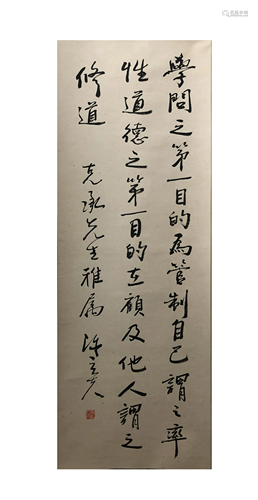 學問之第一目的為管制自己謂之率
性道德之第一目的在顧及他人謂之
修道
克承先生雅属 陳立夫